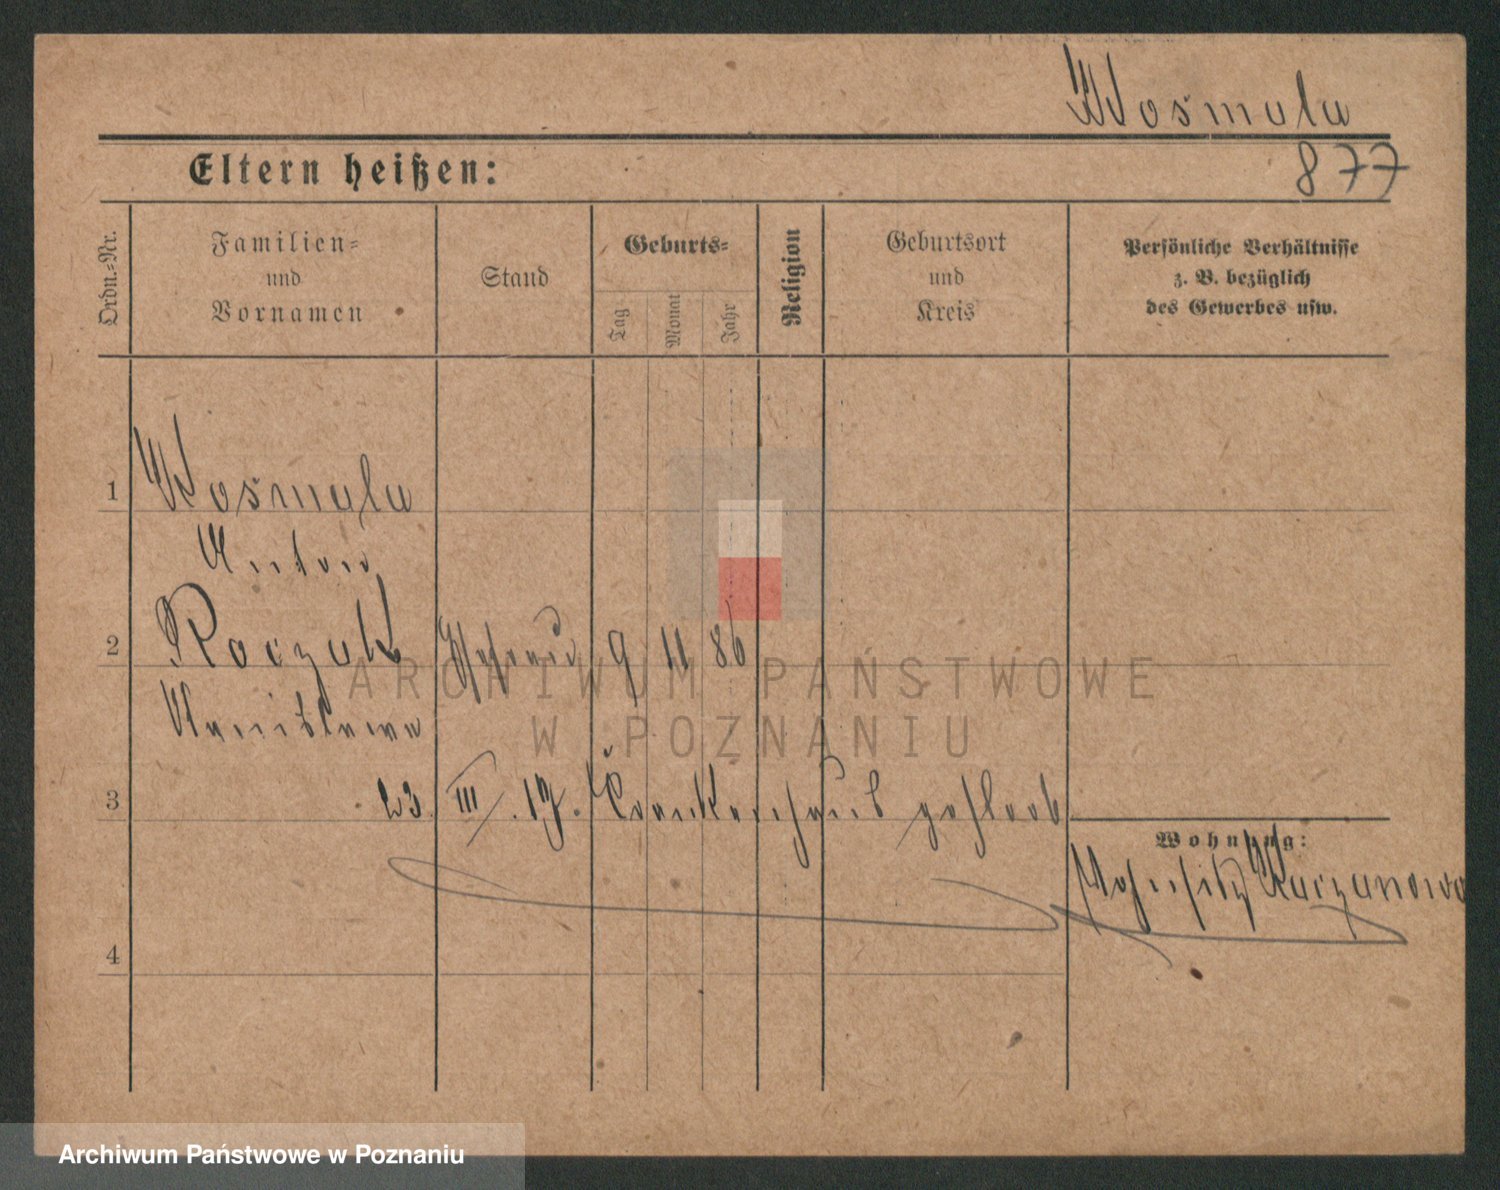 Wośmula
Eltern heißen:
877
Ordn.-Nr.
Familien-
und
Vornamen
Stand
Geburts-
Tag
Monat
Jahr
Religion
Geburtsort
und
Kreis
Persönliche Verhältnisse
z. B. bezüglich
des Gewerbes usw.
1 Wośmula
Anton
2 Roczak 9 11 86
ARCHIWUM PAŃSTWOWE
W POZNANIU
3 23. III. 17. Krankenhaus
Wohnung:
Kaczanowo
4
Archiwum Państwowe w Poznaniu